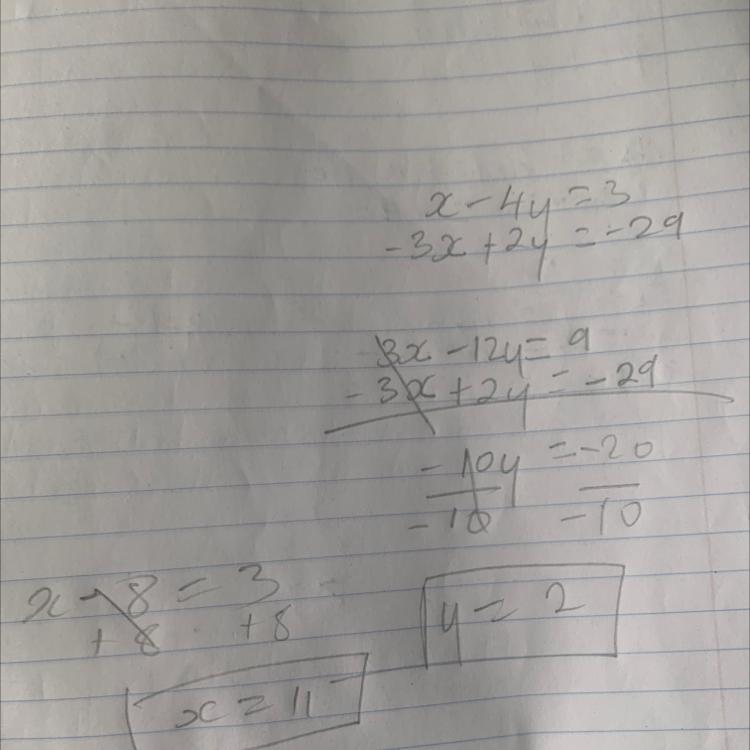 x - 4y = 3
-3x + 2y = -29
3x - 12y = 9
-3x + 2y = -29
-10y = -20
-10 -10
x - 8 = 3
+8 +8
y = 2
x = 11